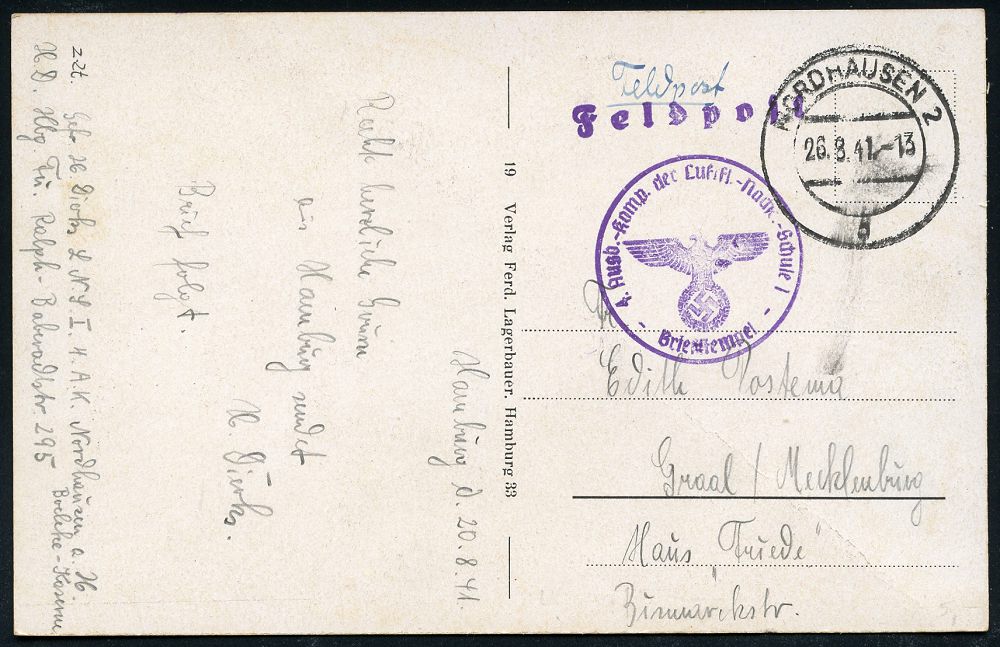 Feldpost
Feldpost
NORDHAUSEN 2
26.8.41.-13
b
4. Ausb.-Komp. der Luftfl.-Nachr.-Schule 1
- Briefstempel -
Edith Postema
Graal / Mecklenburg
Haus "Friede"
Bismarckstr.
19 Verlag Ferd. Lagerbauer, Hamburg 33
Hamburg d. 20.8.41.
Recht herzliche Grüße
aus Hamburg sendet
H. Dierks.
Brief folgt.
z.Zt.
Gefr. H. Dierks L N S I 4. A.K. Nordhausen a. H.
Boelcke-Kaserne
H.D. Hbg Fu. Ralph-